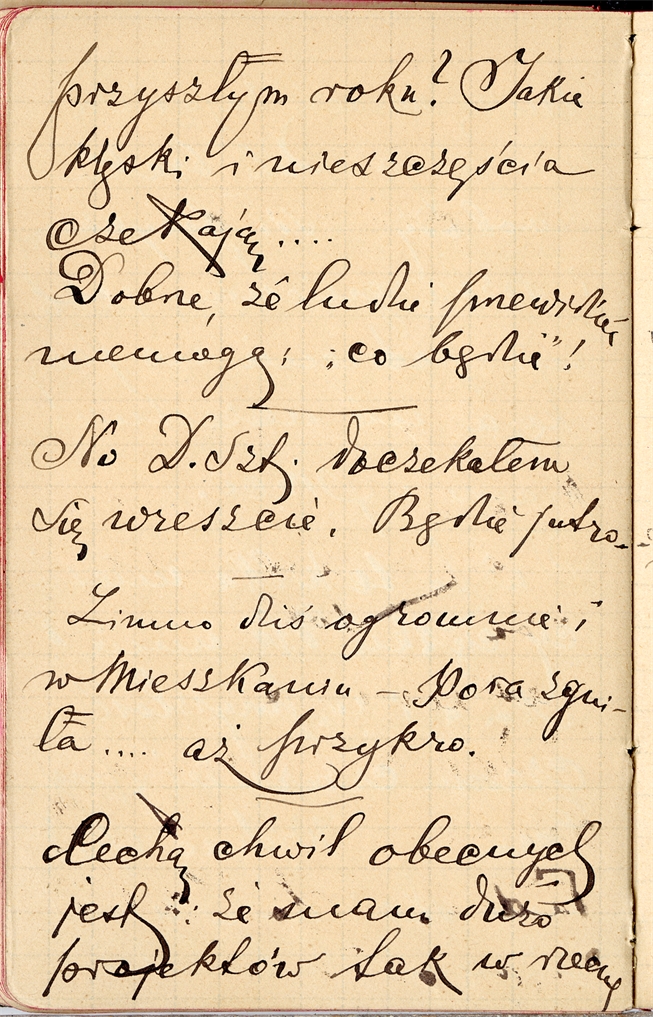 przyszłym roku? Jakie
klęski i nieszczęścia
czekają....
Dobrze, że ludzie przewidzieć
niemogą; „co będzie"!
No D. Szt. doczekałem
się wreszcie. Będzie jutro.
Zimno dziś ogromnie i
w mieszkaniu – Pora zgni-
ła.... aż przykro.
Cechą chwil obecnych
jest: że mam dużo
projektów tak w